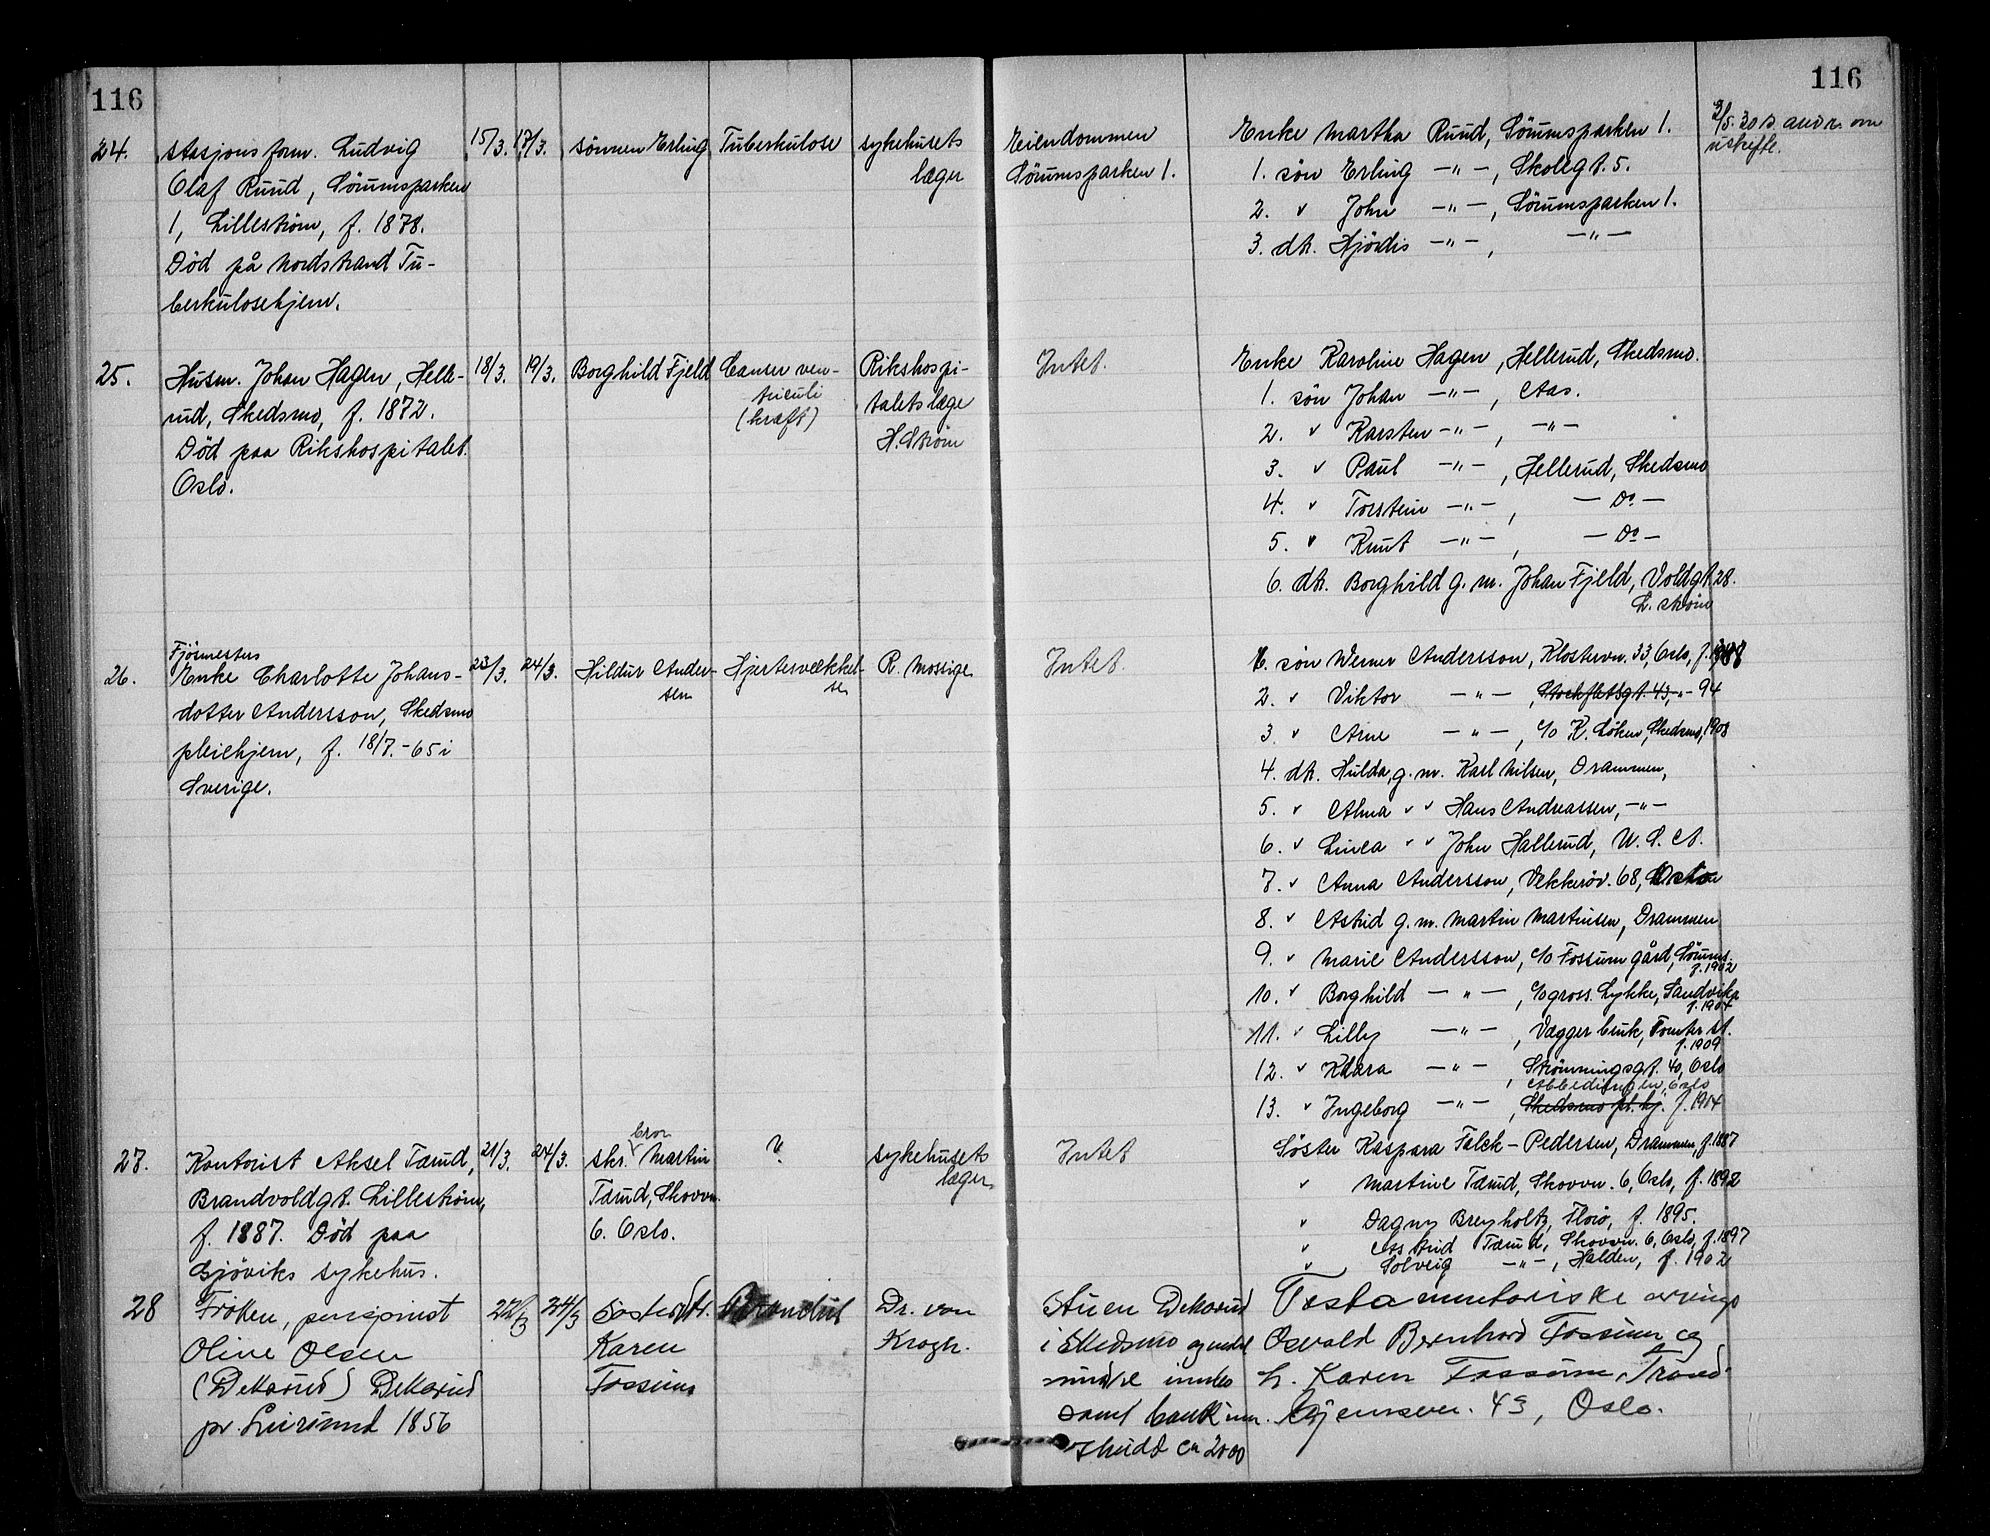 116
116
24. Stasjonsform. Ludvig
Olaf Ruud, Sörumsparken
1, Lilleström, f. 1878.
Död på Nordstrand Tu-
berkulosehjem.
15/3. 17/3. sønnen Erling Tuberkulose sykehusets
læger
Eiendommen
Sörumsparken 1.
Enke Martha Ruud, Sörumsparken 1.
1. søn Erling -"-, Skolegt. 5.
2. v John -"-, Sörumsparken 1.
3. dt. Hjördis -"-, -"-
2/5. 30 s. om
uskifte.
25. Husm. Johan Hagen, Helle-
rud, Skedsmo, f. 1872.
Död paa Rikshospitalet.
Oslo.
18/3. 19/3. Borghild Fjeld Canser ven-
triculi
(kræft)
Rikshospi-
talets læge
H. Ström
Intet.
Enke Karoline Hagen, Hellerud, Skedsmo.
1. søn Johan -"-, Aas.
2. v Karsten -"-, -"-
3. v Paul -"-, Hellerud, Skedsmo
4. v Torstein -"-, - Do -
5. v Knut -"-, - Do -
6. dt. Borghild g. m. Johan Fjeld, Voldgt. 28.
L. ström
26. Fjösmesters
Enke Charlotte Johans-
dotter Andersson, Skedsmo
pleiehjem, f. 18/7.-65 i
Sverige.
23/3. 24/3. Hildur Ander-
sen
Hjertesvækkel-
se
R. Mossige
Intet.
1. søn Werner Andersson, Klostervn. 33, Oslo, f. 1888
2. v Viktor -"-, Stockfletsgt. 43, -"- 94
3. v Arne -"-, c/o K. Löken, Skedsmo, 1908
4. dt. Hulda, g. m. Karl Nilsen, Drammen,
5. v Alma v v Hans Andreassen, -"-
6. v Linea v v John Hallerud, U. S. A.
7. v Anna Andersson, Vekkeröv. 68,
8. v Astrid g. m. Martin Martinsen, Drammen
9. v Marie Andersson, c/o Fossum gård, Sörums.
f. 1902
10. v Borghild -"-, c/o gross. Lykke, Sandvika
f. 1904
11. v Lilly -"-, Vægger bruk, Tomter st.
f. 1909
12. v Klara -"-, Strömningsgt. 40, Oslo
Abbedi­engen, Oslo
13. v Ingeborg -"-, Skedsmo pl. hj. f. 1904
27. Kontorist Aksel Tærud,
Brandvoldgt. Lilleström,
f. 1887. Död paa
Gjöviks sykehus.
21/3. 24/3. bror
skr. Martin
Tærud, Skovvn.
6. Oslo.
?
sykehusets
læger.
Intet
Söster Kaspara Falck-Pedersen, Drammen, f. 1887
v Martine Tærud, Skovvn. 6, Oslo, f. 1892
v Dagny Breyholtz, Florö, f. 1895.
v Astrid Tærud, Skovvn. 6, Oslo, f. 1897
v Solveig -"-, Halden, f. 1902
28 Fröken, pensjonist
Oline Olsen
(Dekarud) Dekarud
pr. Leirsund 1856
22/3 24/3 Søsterdtr.
Karen
Fossum
Dr. von
Krogh.
Dekarud
i Skedsmo
mindre indbo
samt bankinn-
skudd ca 2000
Testamentariske arvinge
Osvald Bernhard Fossum og
h. Karen Fossum, Trond-
hjemsvn. 43, Oslo.